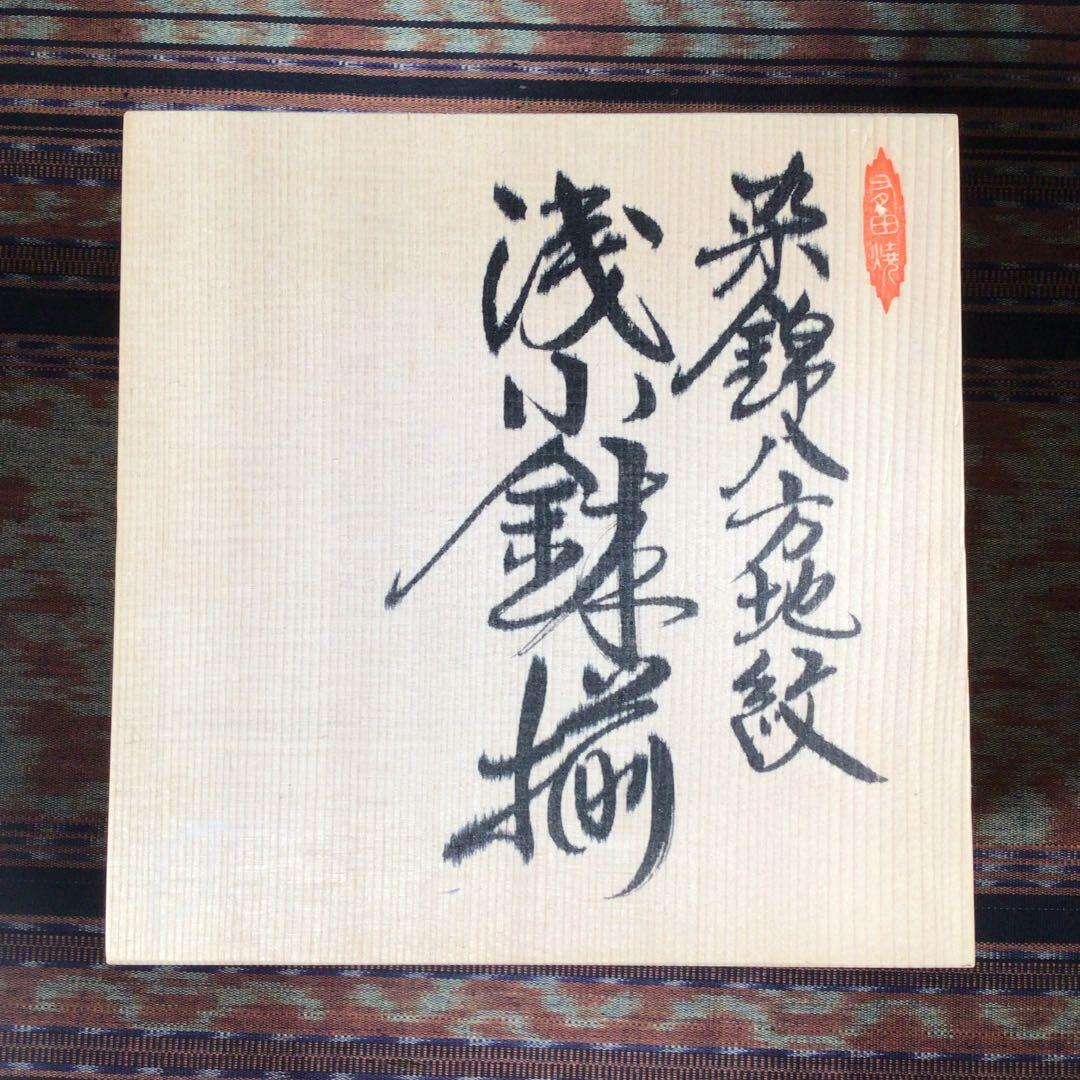 有田焼
染錦八方地紋
浅小鉢揃